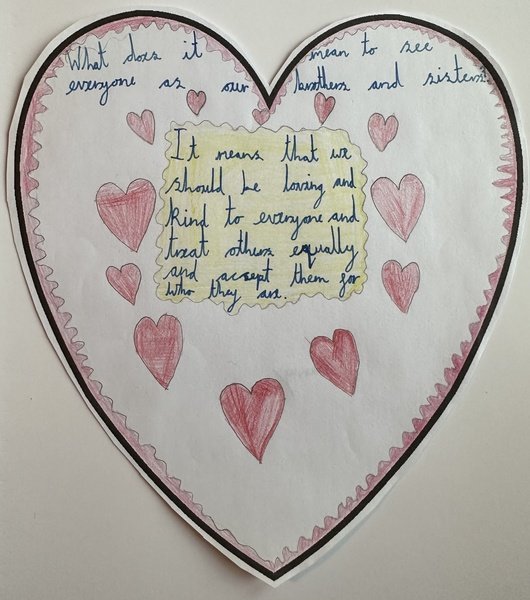 What does it mean to see
everyone as our brothers and sisters
It means that we
should be loving and
kind to everyone and
treat others equally
and accept them for
who they are.